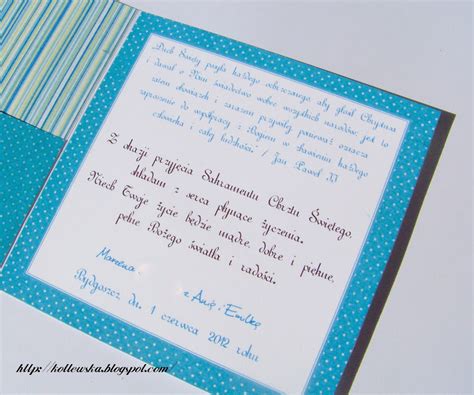 Duch Święty posyła każdego ochrzczonego, aby głosił Chrystusa
i dawał o Nim świadectwo wobec wszystkich narodów, jest to
zatem obowiązek i zarazem przywilej, ponieważ oznacza
zaproszenie do współpracy z Bogiem w zbawieniu każdego
człowieka i całej ludzkości" / Jan Paweł II
Z okazji przyjęcia Sakramentu Chrztu Świętego,
składam z serca płynące życzenia.
Niech Twoje życie będzie mądre, dobre i piękne,
pełne Bożego światła i radości.
Marzena
z Anią i Emilką
Bydgoszcz dn. 1 czerwca 2012 roku
http://kollewska.blogspot.com/